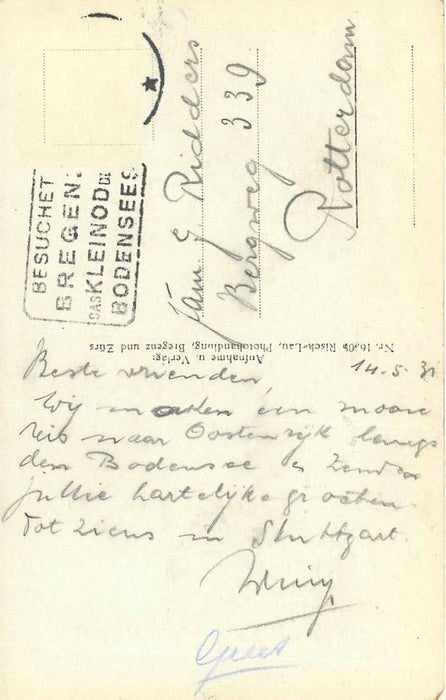 BESUCHET
BREGENZ
DAS KLEINOD DES
BODENSEES
Fam. G. Ridders
Bergweg 339
Rotterdam
Nr. 1650b Risch-Lau, Photohandlung, Bregenz und Zürs
Aufnahme u. Verlag:
14-5-31
Beste vrienden,
Wij maken een mooie
reis naar Oostenrijk langs
den Bodensee & zenden
jullie hartelijke groeten.
Tot ziens in Stuttgart.